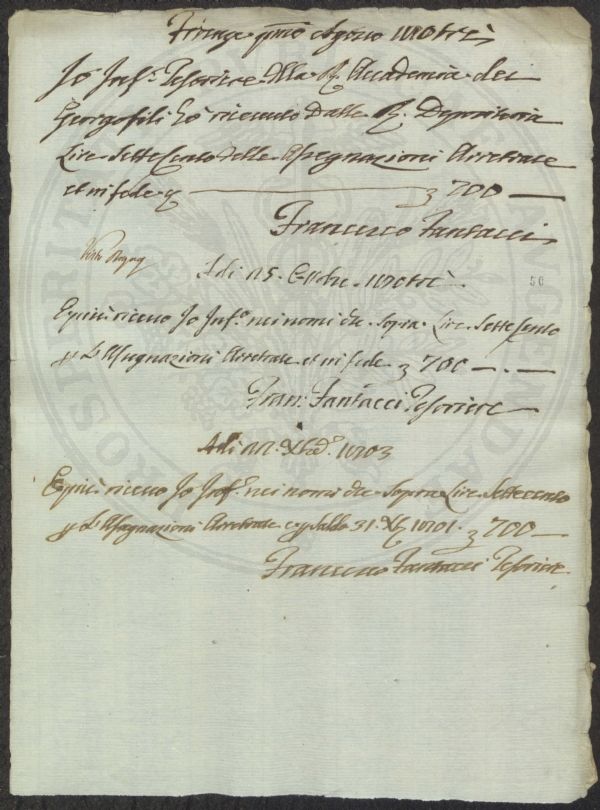 Firenze pmo Agosto 1803
Io Infr. Tesoriere della R. Accademia dei
Georgofili hò riceuto dalla R. Depositeria
Lire Settecento delle Assegnazioni Arretrate
et in fede 700
Francesco Fantacci
Adi 15. Ottobre
56
E piu riceuo Io Infr.o nei nomi da Sopra Lire Settecento
p. L'Assegnazioni Arretrate et in fede 700
Fran. Fantacci Tesoriere
Adi Xbre 1803
E piu riceuo Io Infr. nei nomi da Sopra Lire Settecento
p. L'Assegnazioni Arretrate e p. saldo 31. Xbre 1801. 700
Francesco Fantacci Tesoriere